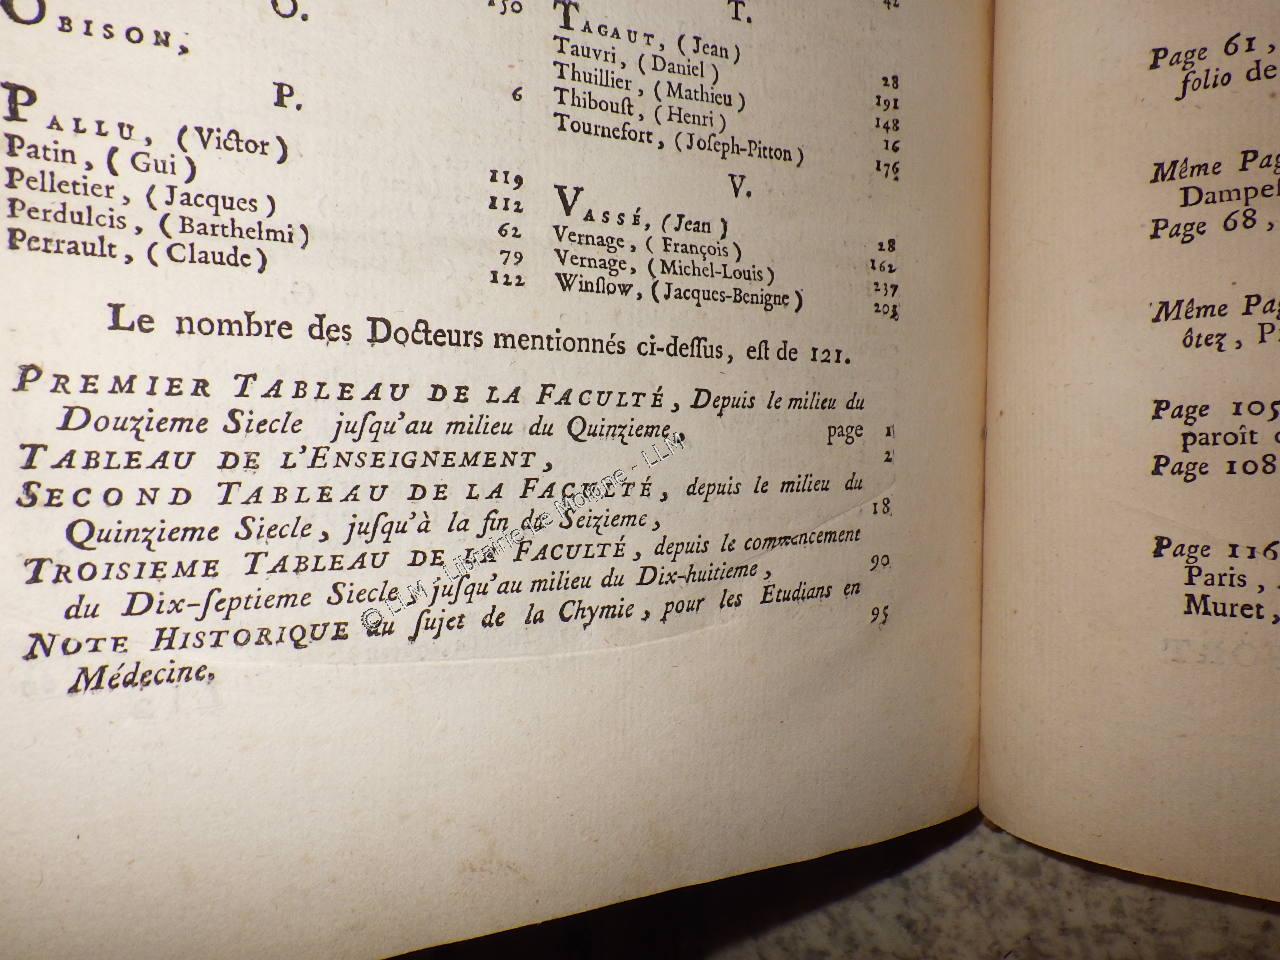 O.
OBISON, 150
P. 6
PALLU, (Victor)
Patin, (Gui) 119
Pelletier, (Jacques) 112
Perdulcis, (Barthelmi) 62
Perrault, (Claude) 79
122
T. 42
TAGAUT, (Jean)
Tauvri, (Daniel) 28
Thuillier, (Mathieu) 191
Thiboust, (Henri) 148
Tournefort, (Joseph-Pitton) 16
176
V.
VASSÉ, (Jean)
Vernage, (François) 28
Vernage, (Michel-Louis) 162
Winslow, (Jacques-Benigne) 237
203
Le nombre des Docteurs mentionnés ci-dessus, est de 121.
PREMIER TABLEAU DE LA FACULTÉ, Depuis le milieu du
Douzieme Siecle jusqu'au milieu du Quinzieme, page 1
TABLEAU DE L'ENSEIGNEMENT, 2
SECOND TABLEAU DE LA FACULTÉ, depuis le milieu du
Quinzieme Siecle, jusqu'à la fin du Seizieme, 18
TROISIEME TABLEAU DE LA FACULTÉ, depuis le commencement
du Dix-septieme Siecle, jusqu'au milieu du Dix-huitieme, 90
NOTE HISTORIQUE au sujet de la Chymie, pour les Etudians en
Médecine, 95
© LLM - Librairie Le Moigne - LLM
Page 61,
folio de
Même Pag
Dampes
Page 68,
Même Pag
ôtez, P
Page 105
paroît
Page 108
Page 116
Paris,
Muret,